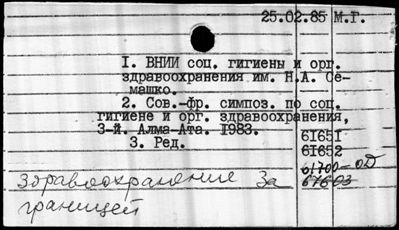 25.02.85 М.Г.
1. ВНИИ соц. гигиены и орг.
здравоохранения им. Н.А. Се-
машко.
2. Сов.-фр. симпоз. по соц.
гигиене и орг. здравоохранения,
3-й. Алма-Ата. 1983.
3. Ред.
61651
61652
61700-ОД
67603
Здравоохранение За
границей